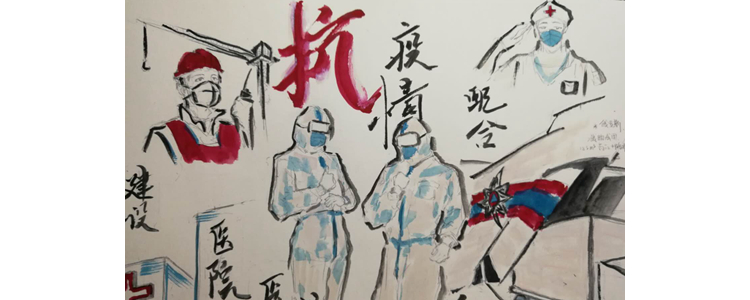 抗
疫
情
配
合
建
设
医
院
医